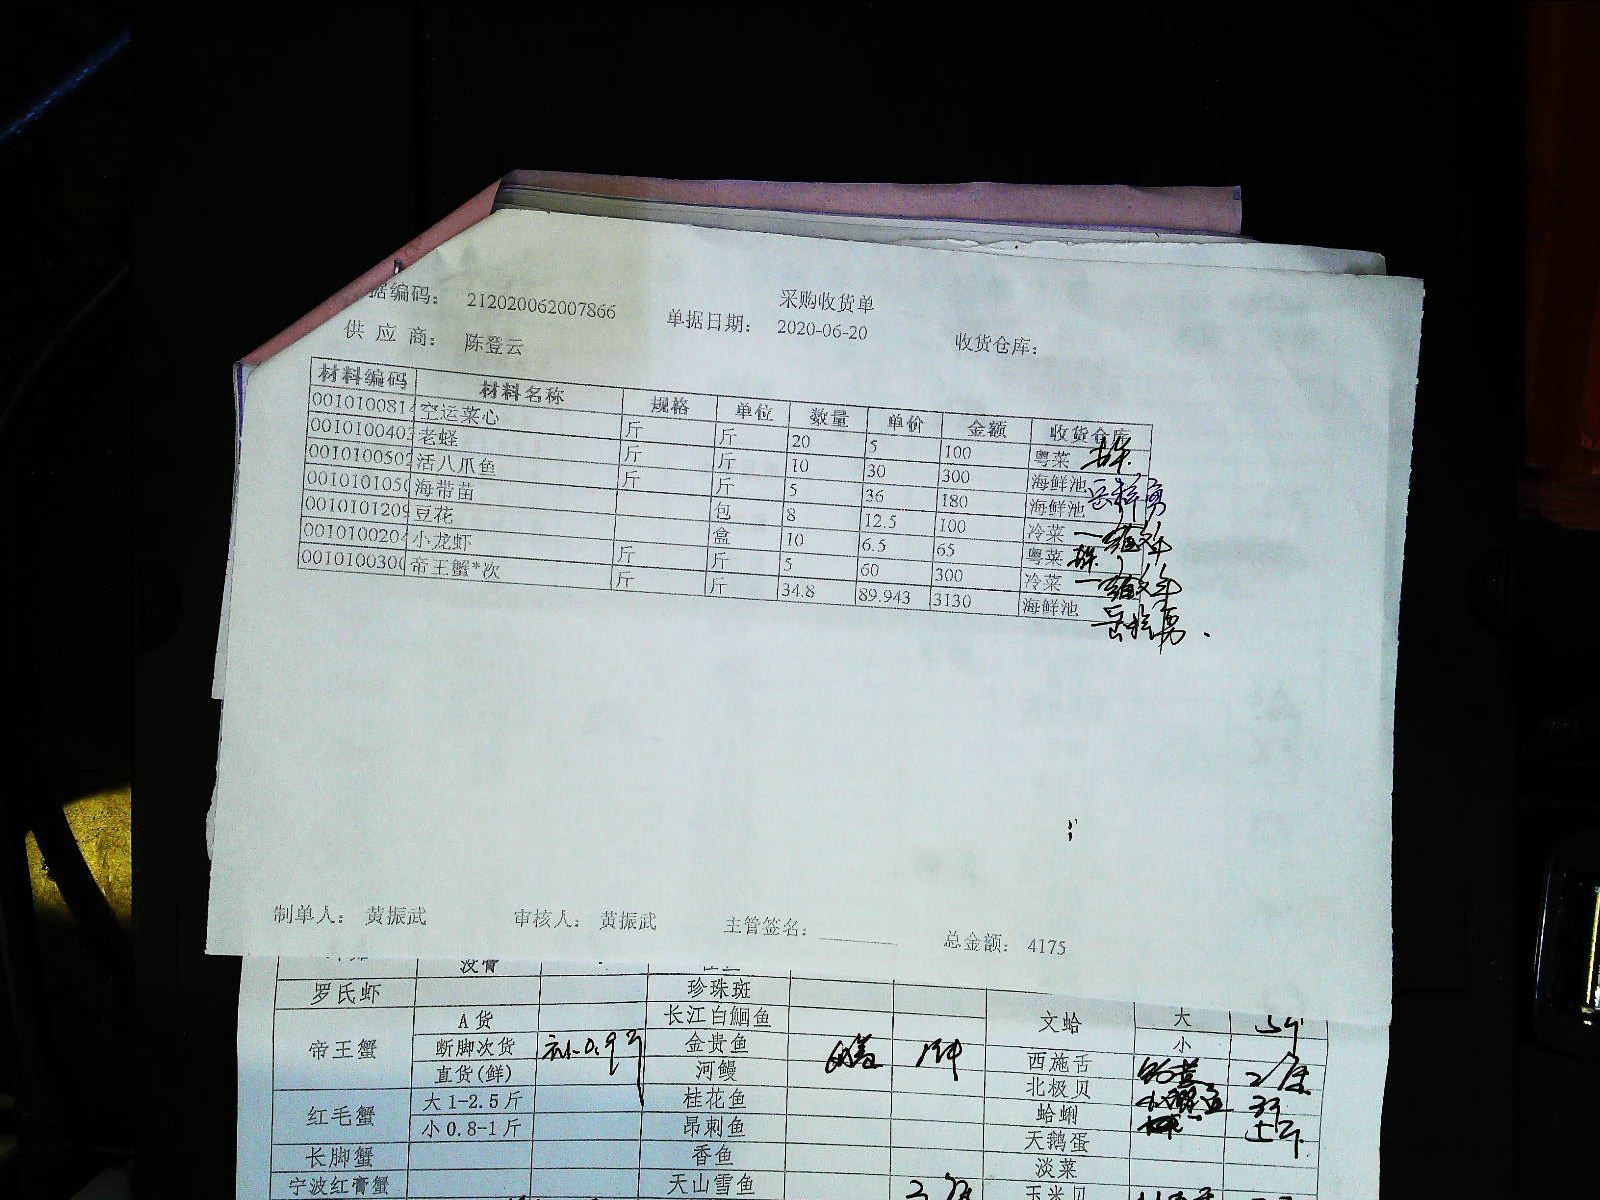 采购收货单
据编码： 212020062007866 单据日期： 2020-06-20 收货仓库：
供 应 商： 陈登云
材料编码 材料名称 规格 单位 数量 单价 金额 收货仓库
001010081 空运菜心 斤 斤 20 5 100 粤菜
001010040 老蛏 斤 斤 10 30 300 海鲜池
001010050 活八爪鱼 斤 斤 5 36 180 海鲜池
001010105 海带苗 包 8 12.5 100 冷菜
001010120 豆花 盒 10 6.5 65 粤菜
001010020 小龙虾 斤 斤 5 60 300 冷菜
001010030 帝王蟹*次 斤 斤 34.8 89.943 3130 海鲜池
制单人： 黄振武 审核人： 黄振武 主管签名： 总金额： 4175
没膏
罗氏虾 珍珠斑
A 货 长江白鮰鱼 文蛤 大
帝王蟹 断脚次货 金贵鱼 小
直货(鲜) 河鳗 西施舌
北极贝
红毛蟹 大 1-2.5 斤 桂花鱼 蛤蜊
小 0.8-1 斤 昂刺鱼 天鹅蛋
长脚蟹 香鱼 淡菜
宁波红膏蟹 天山雪鱼 玉米贝